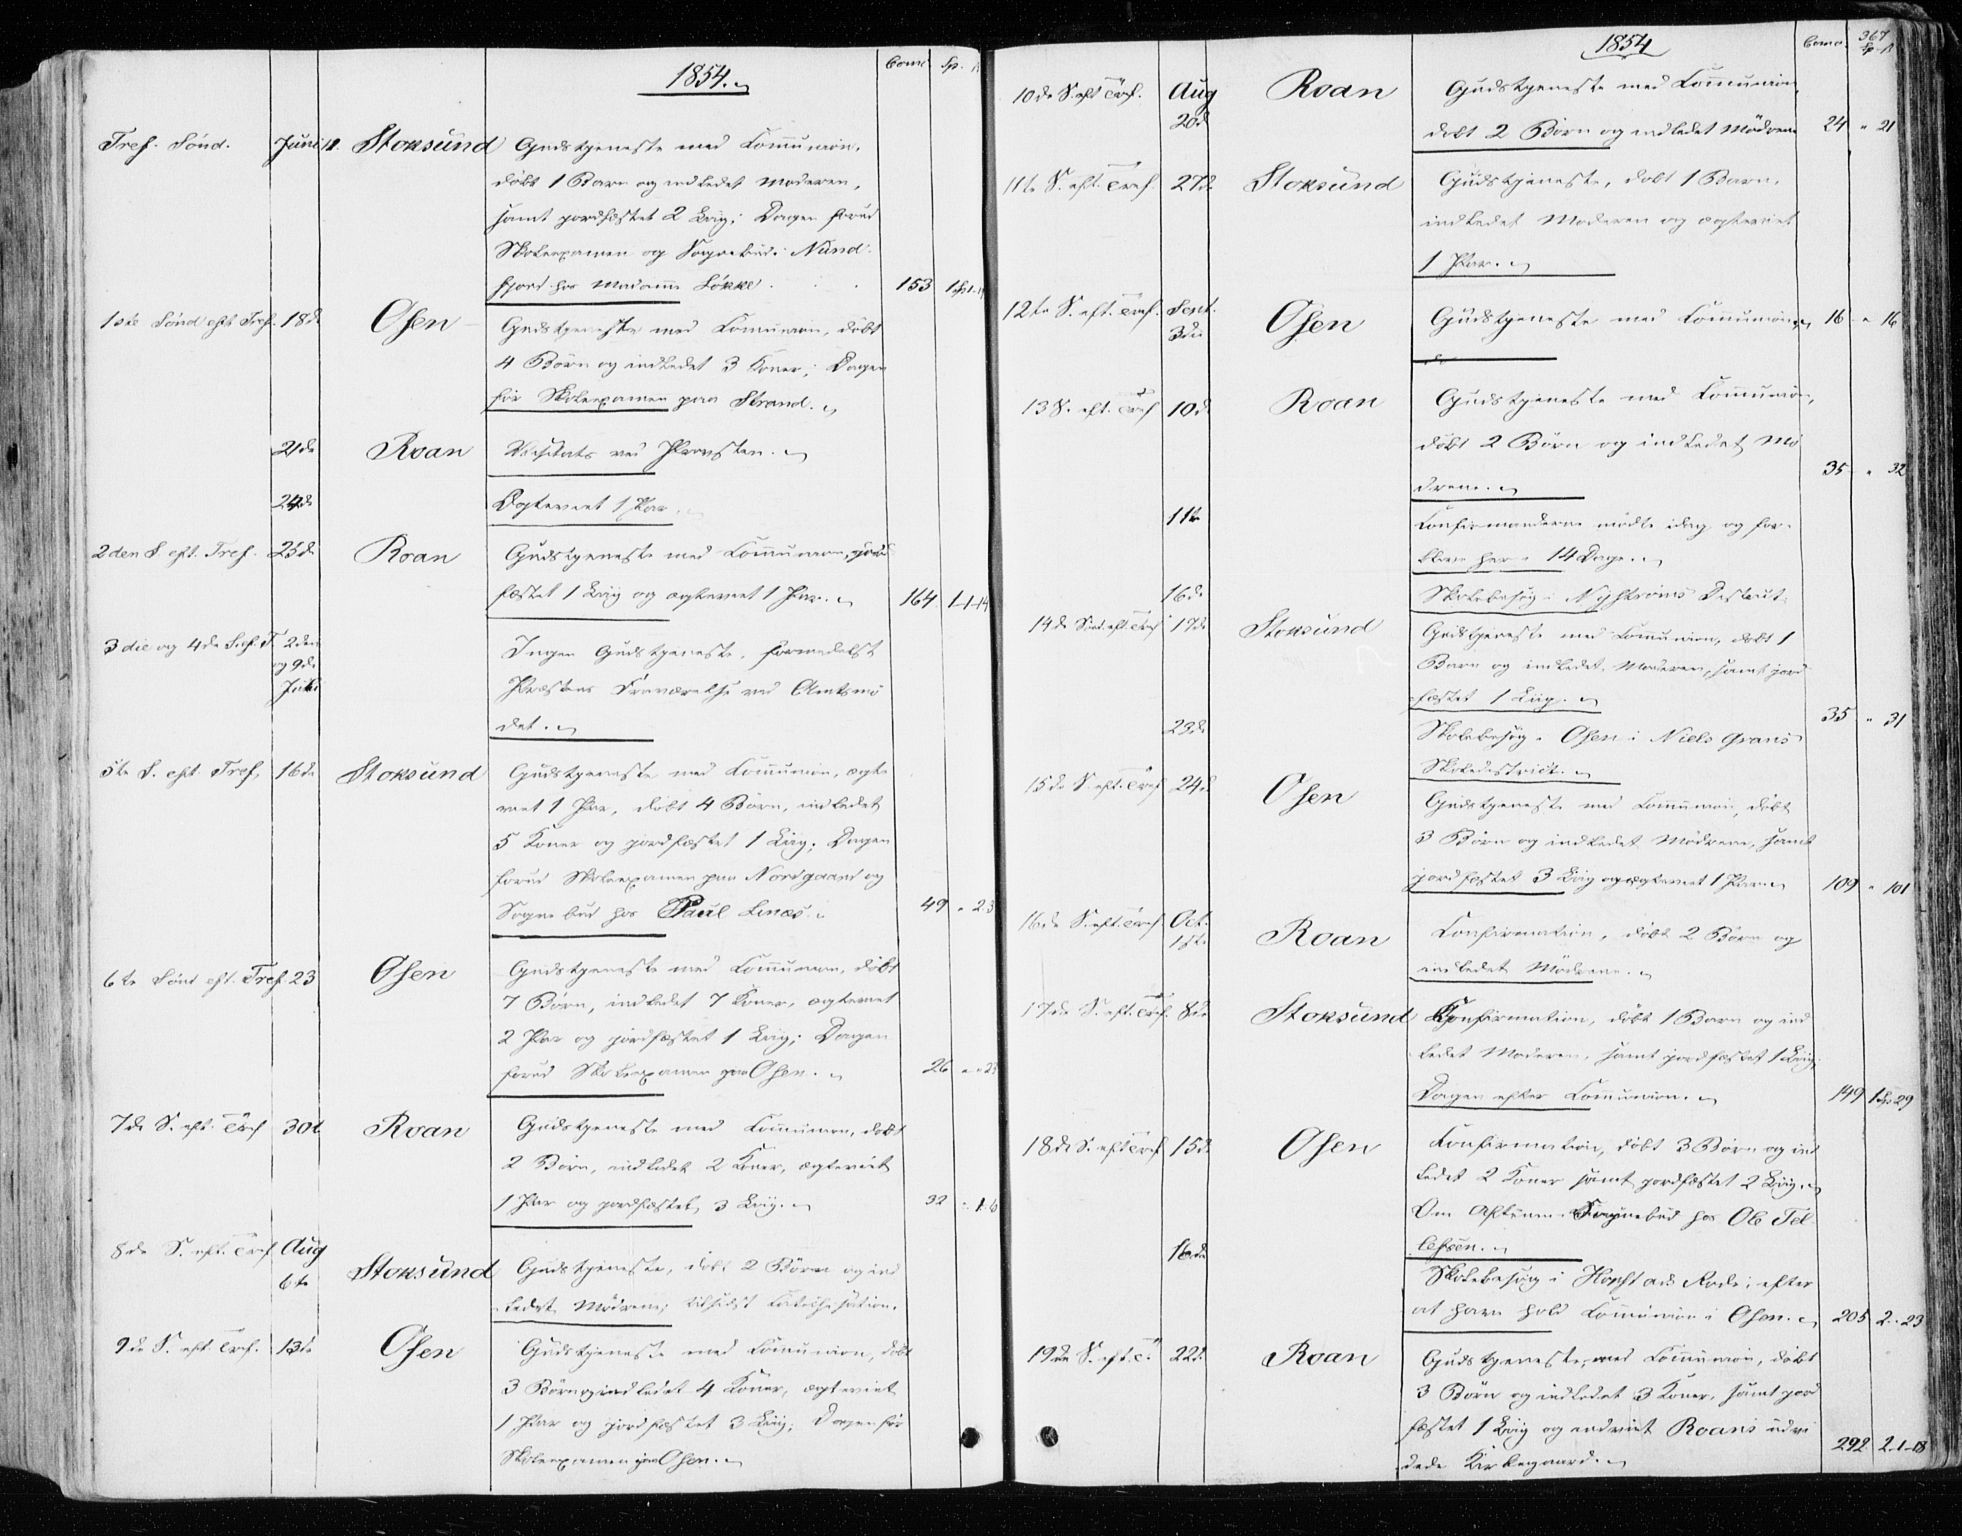 1854.
Comm. Sp.
Tref. Sönd. Juni 11. Stoksund Gudstjeneste med Communion,
döbt 1 Barn og indledet Moderen,
samt jordfæstet 2 Liig; Dagen forud
Skoleexamen og Sognebud i Nand-
fjord hos Madame Lökke . . . 153
1ste Sönd eft Tref. 18de Osen Gudstjeneste med Communion, döbt
4 Börn og indledet 3 Koner; Dagen
för Skoleexamen paa Strand.
21de Roan Visitats ved Provsten.
24de Ægteviet 1 Par.
2den S eft. Tref. 25de Roan Gudstjeneste med Communion, jord
fæstet 1 Liig og ægteviet 1 Par. 164 1-1-14
3die og 4de S. ef. T. 2den og 9de Juli Ingen Gudstjeneste, formedelst
Præstens Fraværelse ved Amtsmö
det.
5te S. eft. Tref. 16de Stoksund Gudstjeneste med Communion, ægte
viet 1 Par, döbt 4 Börn, indledet
5 Koner og jordfæstet 1 Liig; Dagen
forud Skoleexamen paa Nordgaard og
Sognebud hos Paul Linæs. 49 " 23
6te Sönd eft. Tref. 23 Osen Gudstjeneste med Communion, döbt
7 Börn, indledet 7 Koner, ægteviet
2 Par og jordfæstet 1 Liig; Dagen
forud Skoleexamen paa Osen. 26 " " 23
7de S. eft. Tref 30t Roan Gudstjeneste med Communion, döbt
2 Börn, indledet 2 Koner, ægteviet
1 Par og jordfæstet 3 Liig. 32
8de S. eft. Tref Aug 6te Stoksund Gudstjeneste, döbt 2 Börn og ind
ledet Mödrene; tilsidst Catechisation.
9de S. eft. Tref. 13te Osen Gudstjeneste med Communion, döbt
3 Börn og indledet 4 Koner, ægteviet
1 Par og jordfæstet 3 Liig; Dagen för
Skoleexamen paa Osen.
1854
Comm. 367 Sp. ß
10de S. eft Tref. Aug 20d Roan Gudstjeneste med Communion,
döbt 2 Börn og indledet Mödrene 24 " 21
11te S. eft. Tref. 27de Stoksund Gudstjeneste, döbt 1 Barn,
indledet Moderen og ægteviet
1 Par.
12te S. eft. Tref. Sept. 3die Osen Gudstjeneste med Communion 16 " 16
13 S. eft. Tref 10de Roan Gudstjeneste med Communion,
döbt 2 Börn og indledet Mö
drene. 35 " 32
11te Confirmanderne mödte idag og for-
bleve her i 14 Dage.
16de Skolebesög i Nyströms District.
14de Sönd. eft. Tref 17de Stoksund Gudstjeneste med Communion, döbt 1
Barn og indledet Moderen, samt jord
fæstet 1 Liig. 35 " 31
23de Skolebesög i Osen i Niels Grans
Skoledistrict.
15de S. eft. Tref 24de Osen Gudstjeneste med Communion, döbt
3 Börn og indledet Mödrene, samt
jordfæstet 3 Liig og ægteviet 1 Par. 109 " 101
16de S. eft. Tref Oct. 1ste Roan Confirmation, döbt 2 Börn og
indledet Mödrene.
17de S. eft. Tref. 8de Stoksund Confirmation, döbt 1 Barn og ind
ledet Moderen, samt jordfæstet 1 Liig;
Dagen efter Communion. 149 1 Sp. 29
18de S. eft Tref. 15de Osen Confirmation, döbt 3 Börn og ind
ledet 2 Koner samt jordfæstet 2 Liig.
Om Aftenen Sognebud hos Ole Tel-
lefsen.
16de Skolebesög i Hopstads Rode; efter
at have hold Communion i Osen. 205 2 " 23
19de S. eft. T. 22de Roan Gudstjeneste med Communion, döbt
3 Börn og indledet 3 Koner, samt jord
fæstet 1 Liig og indviet Roans udvi
dede Kirkegaard. 292 2-1-18